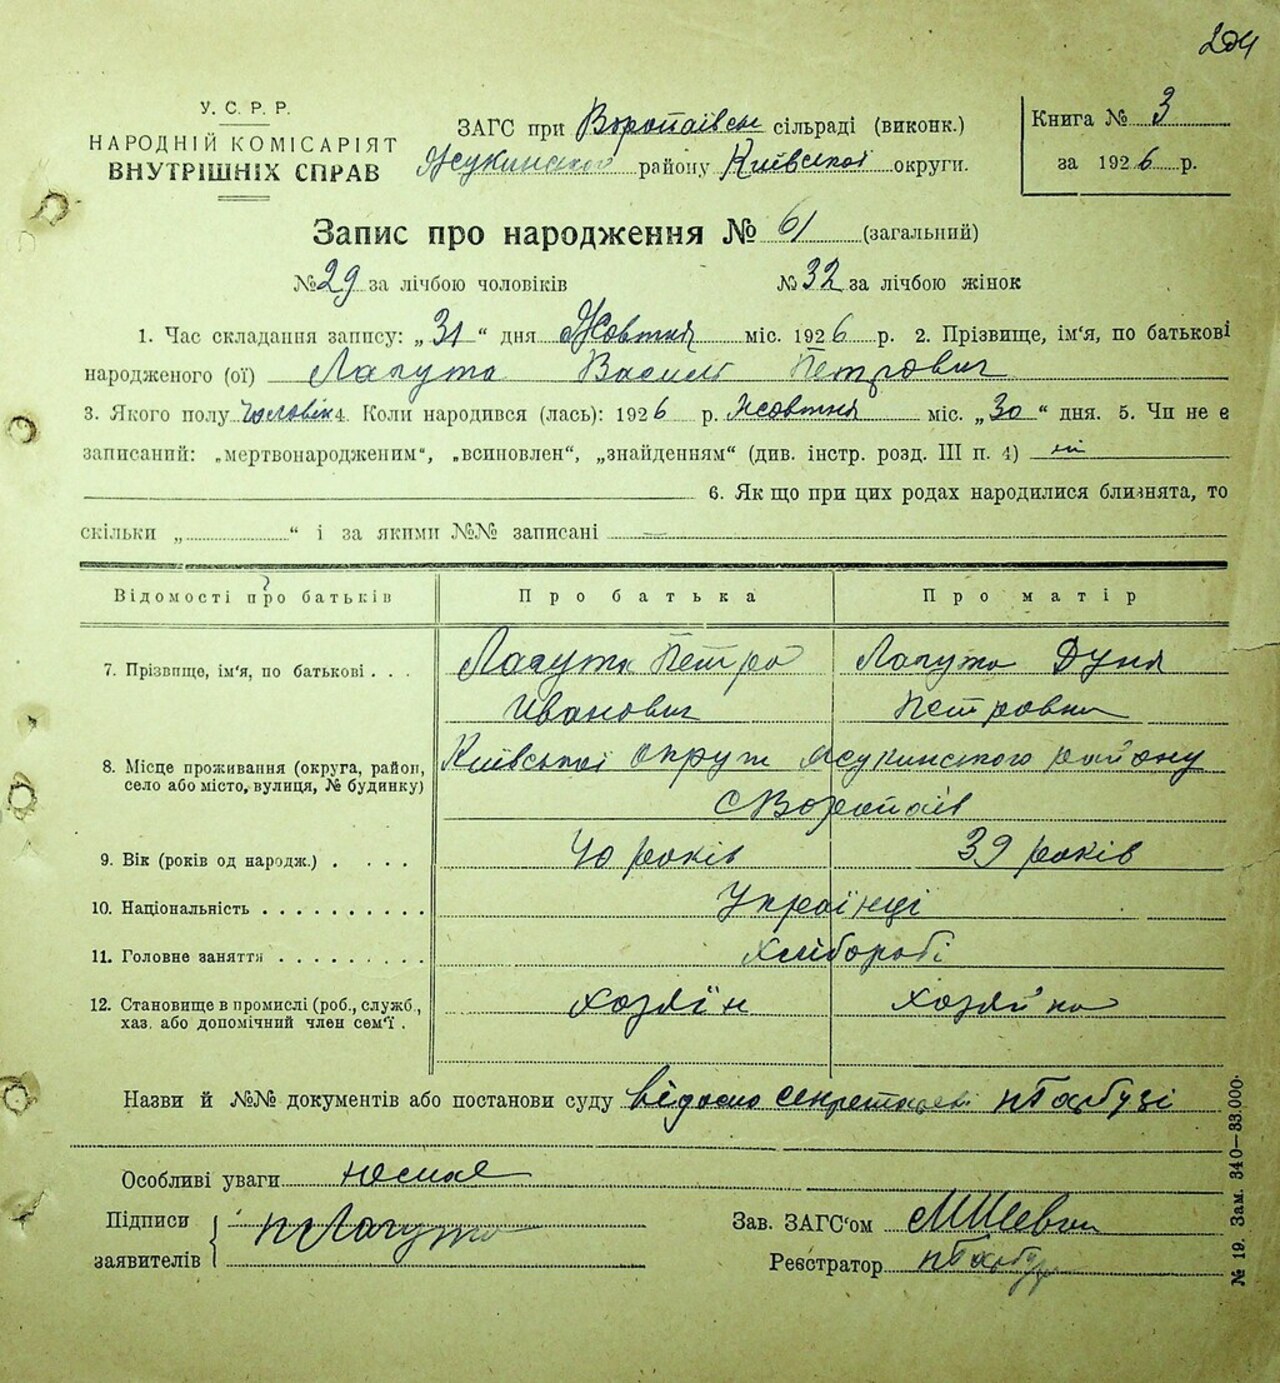 204
У. С. Р. Р.
НАРОДНІЙ КОМІСАРІЯТ
ВНУТРІШНІХ СПРАВ
ЗАГС при Воропаївськ сільраді (виконк.)
Жукинської району Київської округи.
Книга № 3
за 1926 р.
Запис про народження № 61 (загальний)
№ 29 за лічбою чоловіків № 32 за лічбою жінок
1. Час складання запису: „31“ дня Жовтня міс. 1926 р. 2. Прізвище, ім‘я, по батькові
народженого (ої) Лагута Василь Петрович
3. Якого полу чоловік 4. Коли народився (лась): 1926 р. жовтня міс. „30“ дня. 5. Чи не є
записаний: „мертвонародженим“, „всиновлен“, „знайденням“ (див. інстр. розд. III п. 4) ні
6. Як що при цих родах народилися близнята, то
скільки „ “ і за якими №№ записані —
Відомості про батьків Про батька Про матір
7. Прізвище, ім‘я, по батькові . . . Лагута Петро Лагута Дуня
Иванович Петровна
8. Місце проживання (округа, район,
село або місто, вулиця, № будинку)
Київської округи Жукинського району
с Воропаїв
9. Вік (років од народж.) . . . . 40 років 39 років
10. Національність . . . . . . . . . . Українці
11. Головне заняття . . . . . . . . . Хлібороби
12. Становище в промислі (роб., служб.,
хаз. або допомічний член сем‘ї .
хозяїн хозяйка
Назви й №№ документів або постанови суду відомо секретареві
Особливі уваги немає
Підписи
заявителів
п Лагута
Зав. ЗАГС‘ом
Реєстратор
№ 19. Зам. 340—33.000.